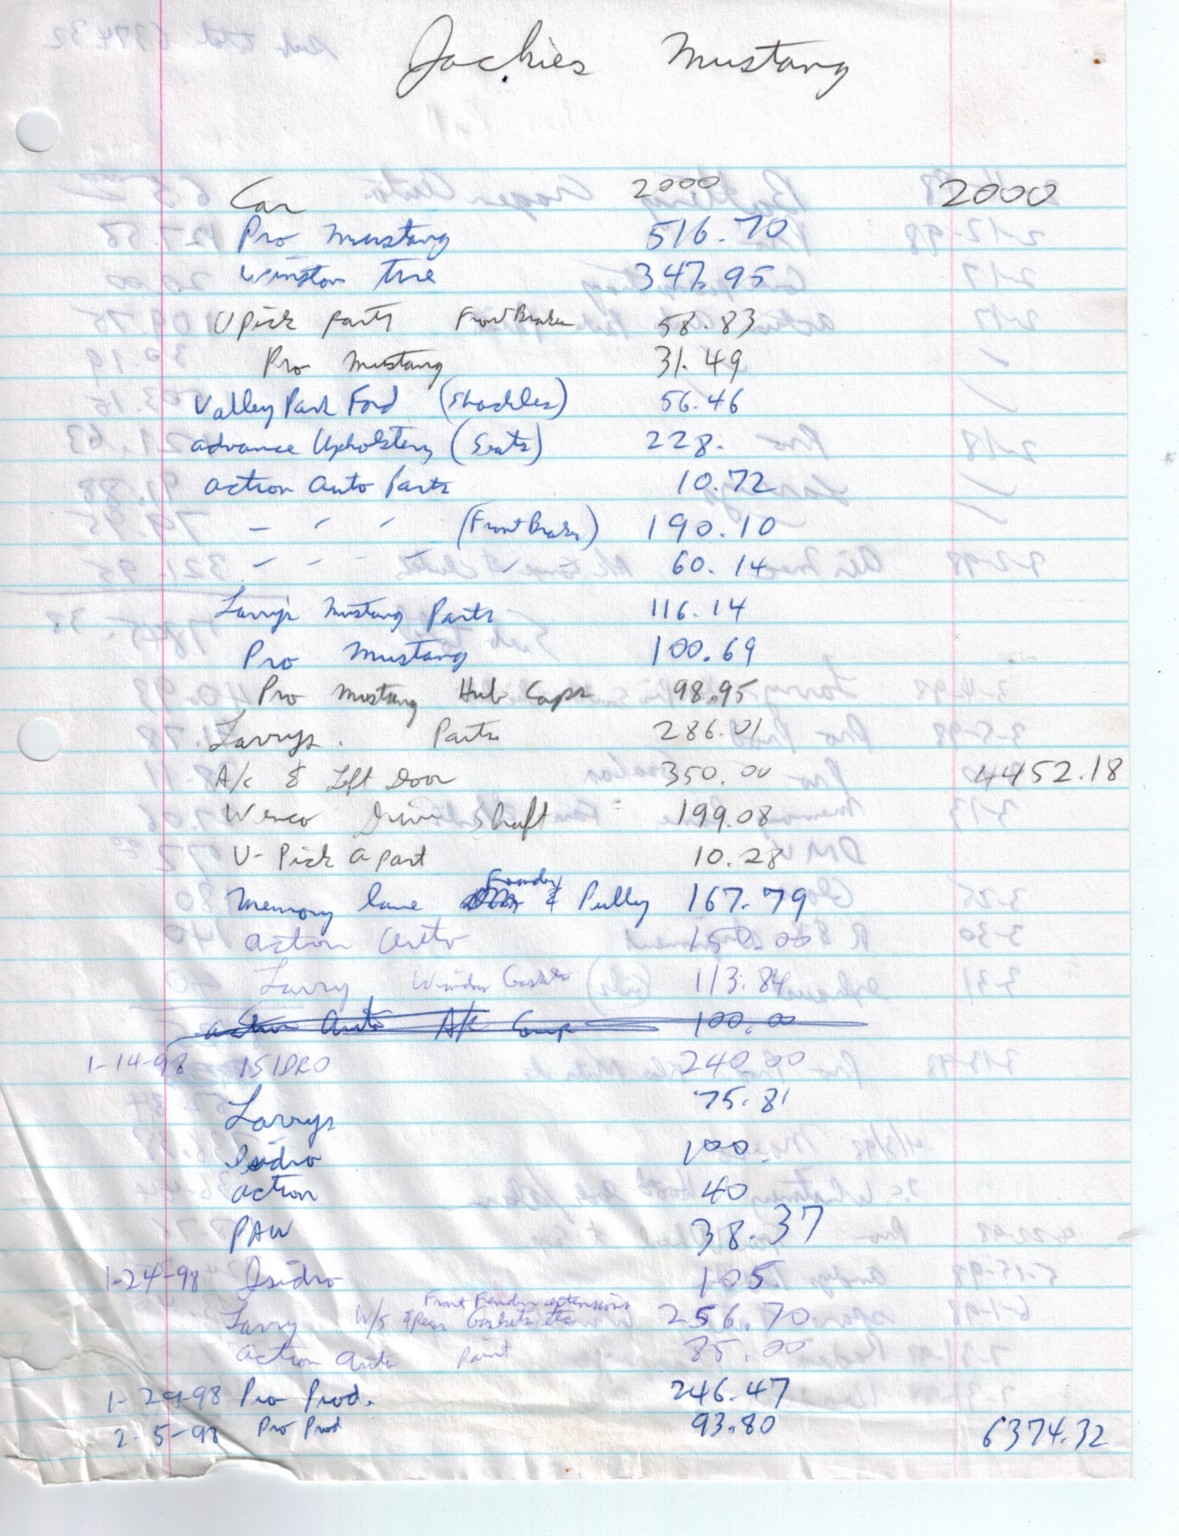 Jackies Mustang
Car 2000 2000
Pro Mustang 516.70
Winston Tire 347.95
U Pick parts Front Brakes 58.83
Pro Mustang 31.49
Valley Park Ford (Shackles) 56.46
advance Upholstery (Seats) 228.
action auto Parts 10.72
- ′ ′ (Front Brakes) 190.10
- - - 60.14
Larry's Mustang Parts 116.14
Pro Mustang 100.69
Pro Mustang Hub Caps 98.95
Larrys. Parts 286.01
A/c & Left Door 350.00 4452.18
Wenco Drive Shaft 199.08
U-Pick a part 10.28
Memory lane & Pully 167.79
action auto 150.00
Larry Window Gaskets 113.84
action auto A/c Comp 100.00
1-14-98 ISIDRO 240.00
Larrys 75.81
Isidro 100.
action 40
PAW 38.37
1-24-98 Isidro 105
Front Fender extensions
Larry W/s & Rear Gaskets etc 256.70
action auto paint 85.00
1-29-98 Pro Prod. 246.47
2-5-98 Pro Prod 93.80 6374.32